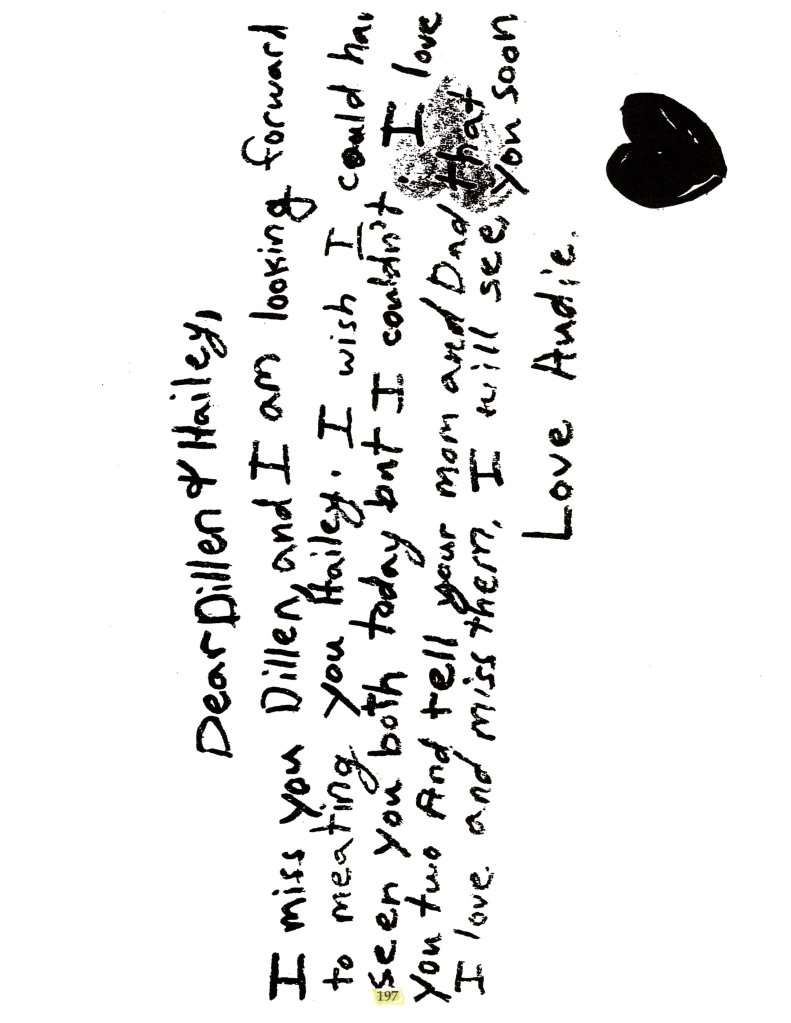 Dear Dillen & Hailey,
I miss you Dillen, and I am looking forward
to meating you Hailey. I wish I could hav
seen you both today but I couldn't. I love
you two And tell your mom and Dad that
I love and miss them, I will see, you soon
Love Audie.
197